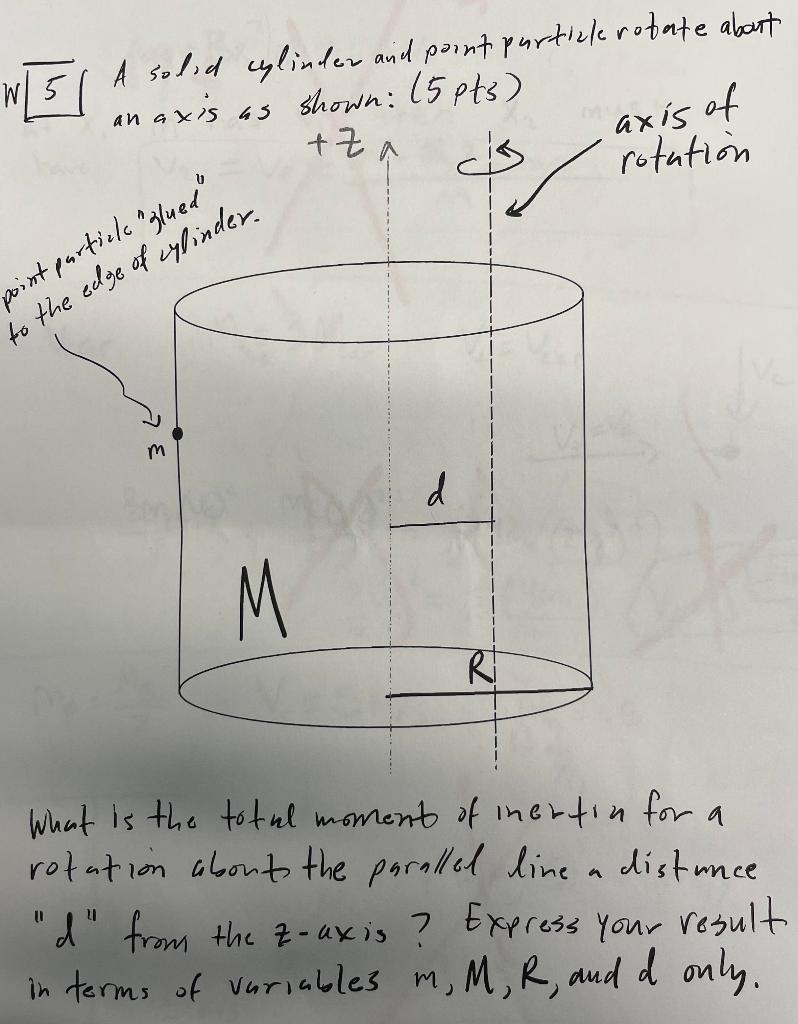 W 5 A solid cylinder and point particle rotate about
an axis as shown: (5 pts)
+Z
axis of
rotation
point particle "glued"
to the edge of cylinder.
m
d
M
R
What is the total moment of inertia for a
rotation about the parallel line a distance
"d" from the z-axis? Express your result
in terms of variables m, M, R, and d only.